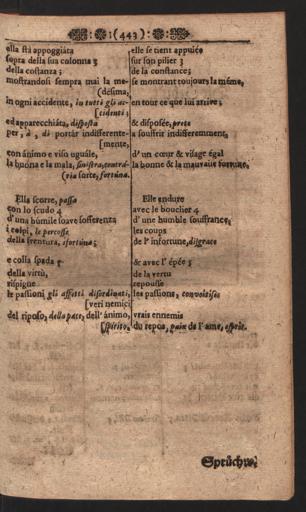 (443)
ella sti appoggiáta
sopra della sua colonna 3
della costanza;
mostrandosi sempra mai la me-
(désima,
in ogni accidente, in tutti gli ac-
[cidenti:
ed apparecchiáta, disposta
per, a, di portár indifferente-
[mente,
con ánimo e viso uguále,
la buóna e la mala, sinistra, contrá-
(ria sorte, fortúna.
Ella scorre, passa
con lo scudo 4
d'una húmile soave sofferenza
i colpi, le percosse
della sventura, sfortúna;
e colla spada 5
della virtù,
rispigne
le passioni, gli affetti disordinati,
[veri nemici
del riposo, della pace, dell' ánimo,
[spirito.
elle se tient appuiée
sur son pilier 3
de la constance;
se montrant toujours la méme,
en tout ce que lui arrive;
& disposée, prete
a souffrir indifferemment,
d'un cœur & visage égal
la bonne & la mauvaise fortune.
Elle endure
avec le bouclier 4
d'une humble souffrance,
les coups
de l'infortune, disgrace
& avec l'épée 5
de la vertu
repousse
les passions, convoitises
vrais ennemis
du repos, paix de l'ame, esprit.
Sprüchw.